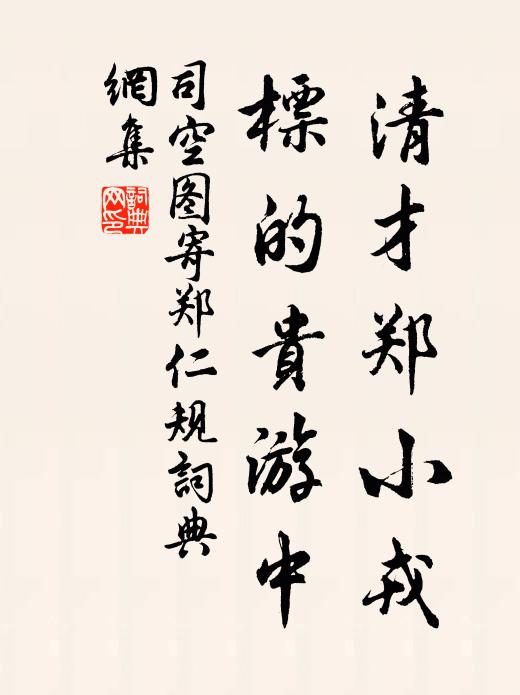 清才郑小戎
標的貴游中
司空图寄郑仁规詞典
網集
詞典网印